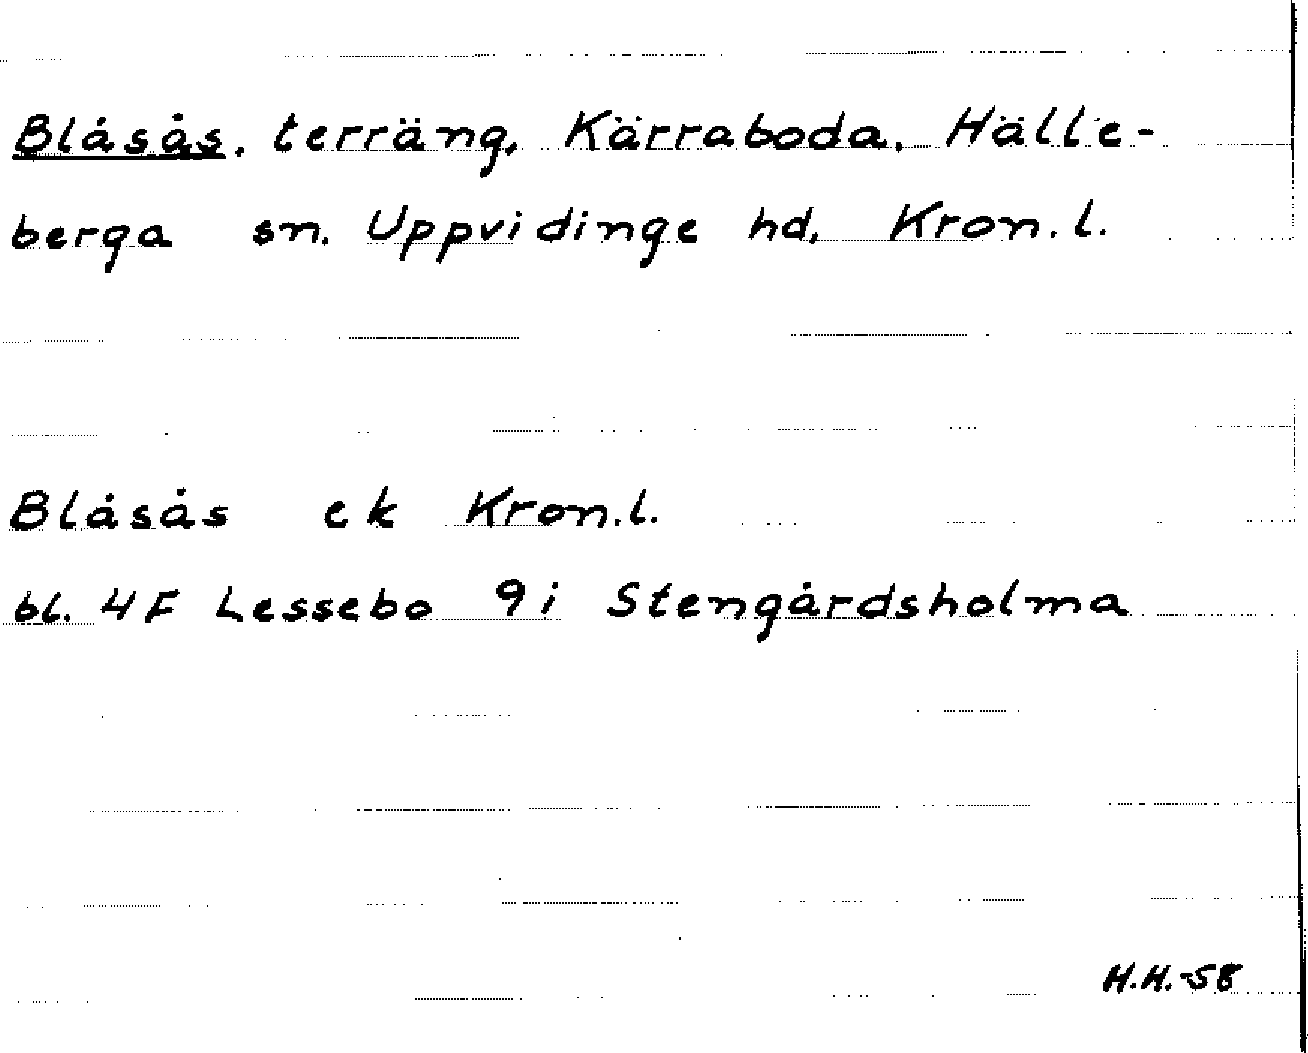 Blåsås, terräng, Kärraboda, Hälle-
berga sn. Uppvidinge hd, Kron.l.
Blåsås ek Kron.l.
bl. 4F Lessebo 9i Stengårdsholma
H.H.-58